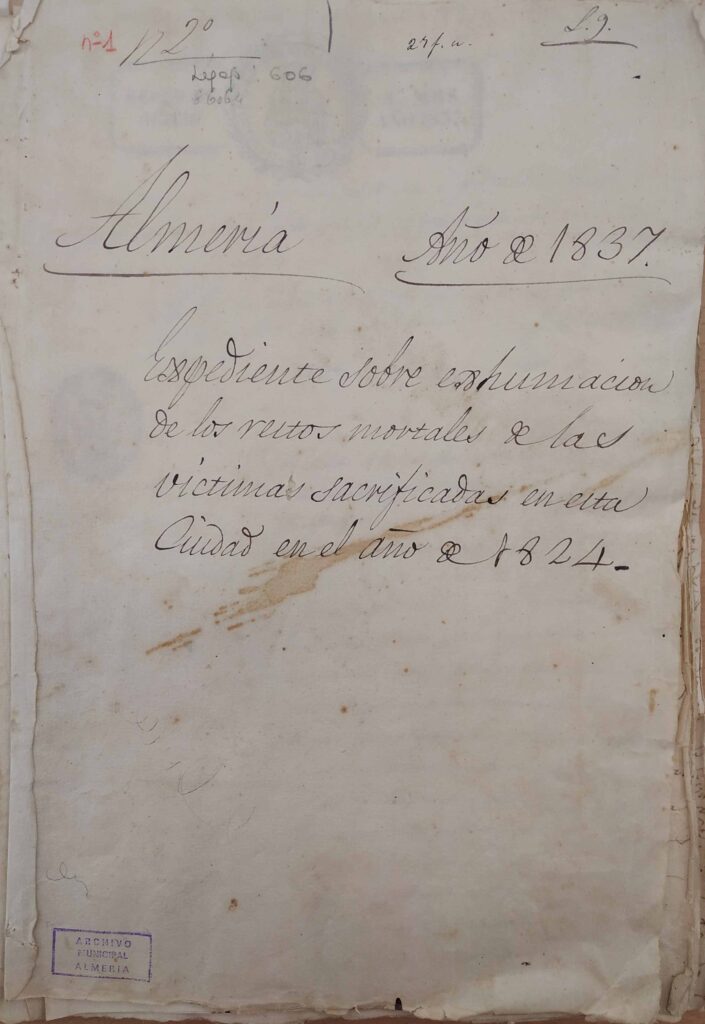 nº1 N 2º 27 f. u. L. 9.
Legajo: 606
86064
Almería Año de 1837.
Expediente sobre exhumacion
de los restos mortales de las
víctimas sacrificadas en esta
Ciudad en el año de 1824.
ARCHIVO
MUNICIPAL
ALMERIA